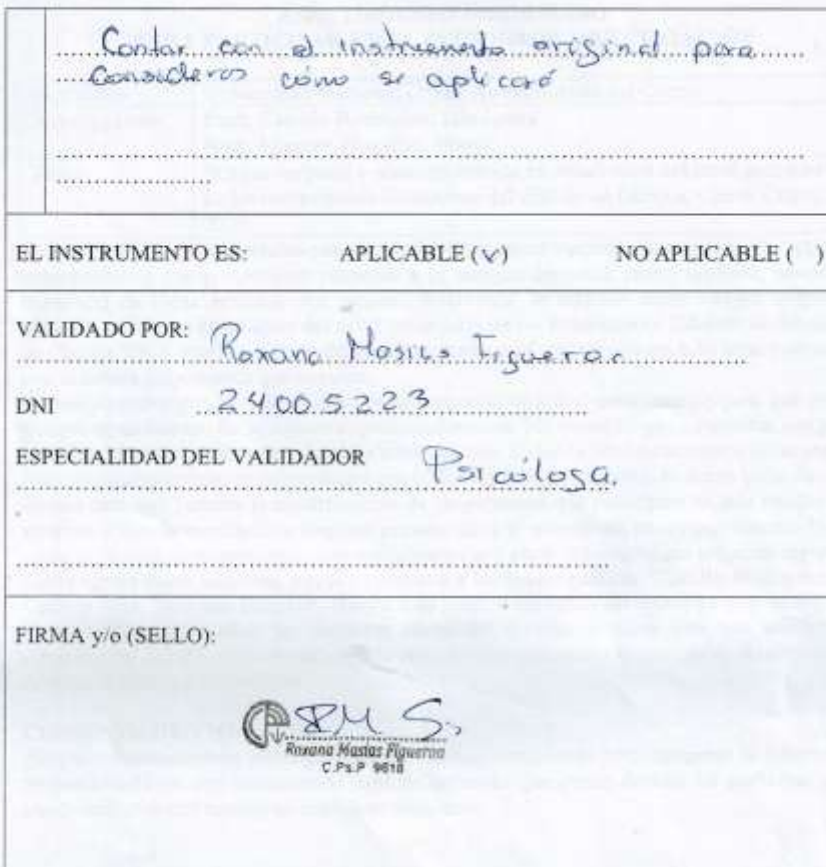 Contar con el instrumento original para
Considerar cómo se aplicará
EL INSTRUMENTO ES: APLICABLE (✓) NO APLICABLE ( )
VALIDADO POR: Roxana Masias Figueroa
DNI 24005223
ESPECIALIDAD DEL VALIDADOR Psicóloga.
FIRMA y/o (SELLO):
Roxana Masias Figueroa
C.Ps.P 9618